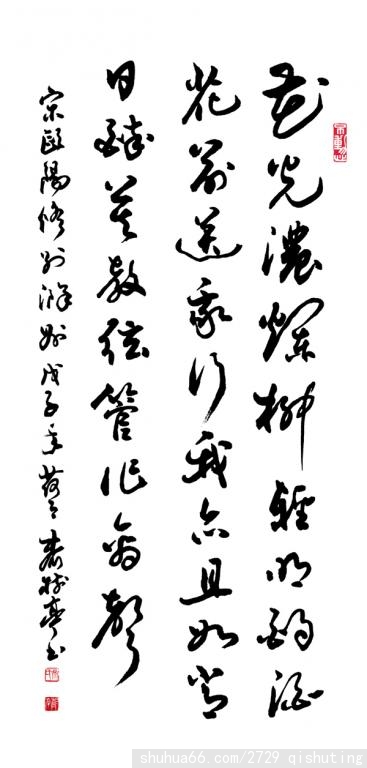 花光濃爛柳輕明酌酒
花前送我行我亦且如常
日醉莫教弦管作离聲
宋歐陽修別滁州戊子年樹亭書
shuhua66.com/2729 qishuting